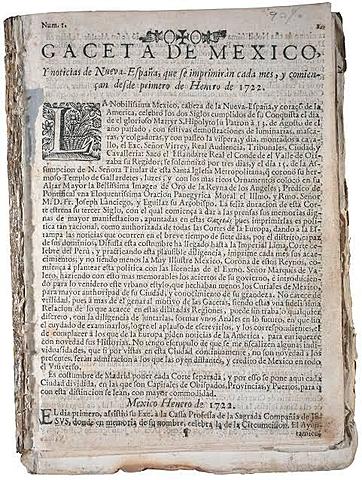 Num. 1.
GACETA DE MEXICO,
Y noticias de Nueva-España, que se imprimirán cada mes, y comien-
çan desde primero de Henero de 1722.
LA Nobilissima Mexico, cabeza de la Nueva-España, y coraçõ de la
America, celebrò los dos Siglos cumplidos de su Conquista el dia
de el glorioso Martyr S. Hipolyto su Patron à 13. de Agosto de el
año passado, con festivas demostraciones de luminarias, masca-
ras, y colgaduras, y con passeo la vispera, y dia, montado à cava-
llo, el Exc. Señor Virrey, Real Audiencia, Tribunales, Ciudad, y
Cavalleria: Sacò el Estandarte Real el Conde de el Valle de Oriz-
aba su Regidor; se solemnizò por tres dias, y el dia 15. de la As-
sumpcion de N. Señora Titular de esta Santa Iglesia Metropolitana, se coronò su her-
moso Templo de Gallardetes, luzes, y con los mas ricos Ornamentos se colocò en el
Altar Mayor la Bellissima Imagen de Oro de la Reyna de los Angeles; Predicò de
Pontifical vna Eloquentissima Oracion Panegyrica Moral el Illmo. y Rmo. Señor
M. D. Fr. Joseph Lanciego, y Eguilaz su Arçobispo. La feliz duracion de esta Cor-
te estrena su tercer Siglo, con el qual comiença à dar à las prensas sus memorias dig-
nas de mayor manifestacion, apuntadas en estas Gacetas, pues imprimirlas es poli-
tica tan racional, como authorizada de todas las Cortes de la Europa, dando à la Es-
tampa las noticias que ocurren en el breve tiempo de siete dias, por el districto, capaz
de sus dominios. Difusa esta costumbre ha llegado hasta la Imperial Lima, Corte ce-
lebre del Perù, y practicando esta plausible diligencia, imprime cada mes sus acae-
cimientos; y no siendo menos la Muy Ilustre Mexico, Corona de estos Reynos, co-
miença à plantear esta politica con las licencias de el Exmo. Señor Marquès de Va-
lero, haziendo con ello mas memorables los aciertos de su govierno, è introducien-
do para lo venidero este vrbano estylo, que hechavan menos los Curiales de Mexico,
para mayor authoridad de su Ciudad, y conocimiento de su grandeza. No carece de
vtilidad, pues à mas de el general motivo de las Gacetas, siendo esta vna fidelissima
Relacion de lo que acaece en estas dilatadas Regiones, puede sin trabajo qualquier
erudito, con la diligencia de juntarlas, formar vnos Anales en lo futuro, en que sin
el cuydado de examinarlos, logre el aplauso de escrevirlos, y los correspondientes, el
de complacer à los que de la Europa piden noticias de la America, para enriquecer
con novedad sus Historias. No tengo escrupulo de que se me fiscalizen algunas indivi-
dualidades, que si por vistas en esta Ciudad continuamente, no son novedad à los
presentes, serán admiracion à los que las oyen distantes, y credito de Mexico en todo
el Vniverso.
Es costumbre de Madrid poner cada Corte separada; y por esso se pone aqui cada
Ciudad dividida, en las que son Capitales de Obispados, Provincias, y Puertos, para q̃
con esta distincion se lean, con mayor commodidad.
Mexico Henero de 1722.
EL dia primero, assistiò su Exc. à la Cassa Professa de la Sagrada Compañia de JE-
SVS, donde en memoria de su nombre, celebra la de la Circumcision. El Ayun-
tamien-